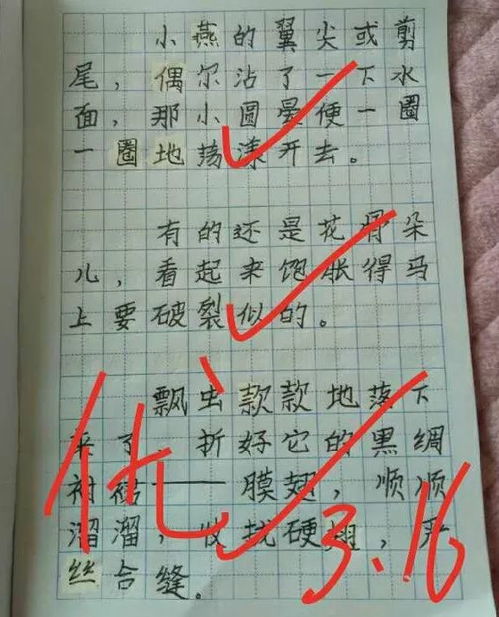 小燕的翼尖或剪
尾，偶尔沾了一下水
面，那小圆晕便一圈
一圈地荡漾开去。
有的还是花骨朵
儿，看起来饱胀得马
上要破裂似的。
飘虫款款地落下
来了，折好它的黑绸
衬裙——膜翅，顺顺
溜溜，收找硬翅，严
丝合缝。
优
3.16